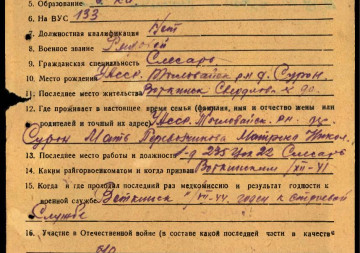 5. Образование
6. На ВУС 133
7. Должностная квалификация Нет
8. Военное звание Рядовой
9. Гражданская специальность Слесарь
10. Место рождения УАССР. р-н д. Сурон.
11. Последнее место жительства Воткинск Свердлова
12. Где проживает в настоящее время семья (фамилия, имя и отчество жены или
родителей и точный их адрес) УАССР. р-н.
Сурон Мать Перевощикова Матрена Никол.
13. Последнее место работы и должность з-д 235 Цех 22 Слесарь
14. Каким райгорвоенкоматом и когда призван Воткинским XII-41
15. Когда и где проходил последний раз медкомиссию и результат годности к
военной службе Воткинск XII-44. годен к строевой
службе
16. Участие в Отечественной войне (в составе какой последней части и качестве